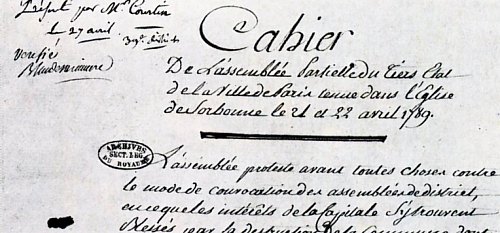 par Mr. Courtin
Le 27 avril.
Vérifié
Cahier
De L'assemblée Partielle du Tiers Etat
de la Ville de Paris tenue dans l'Eglise
de Sorbonne le 21 et 22 avril 1789.
ARCHIVES
SECT. LEG.
DU ROYAUME
L'assemblée proteste avant toutes choses contre
le mode de convocation des assemblées de district,
en ce que les intérêts de la Capitale s'y trouvent
blessés par la destruction de la Commune dont